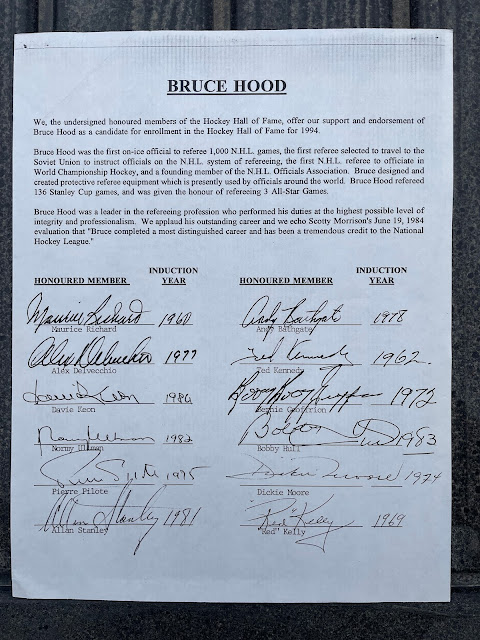 BRUCE HOOD
We, the undersigned honoured members of the Hockey Hall of Fame, offer our support and endorsement of
Bruce Hood as a candidate for enrollment in the Hockey Hall of Fame for 1994.
Bruce Hood was the first on-ice official to referee 1,000 N.H.L. games, the first referee selected to travel to the
Soviet Union to instruct officials on the N.H.L. system of refereeing, the first N.H.L. referee to officiate in
World Championship Hockey, and a founding member of the N.H.L. Officials Association. Bruce designed and
created protective referee equipment which is presently used by officials around the world. Bruce Hood refereed
136 Stanley Cup games, and was given the honour of refereeing 3 All-Star Games.
Bruce Hood was a leader in the refereeing profession who performed his duties at the highest possible level of
integrity and professionalism. We applaud his outstanding career and we echo Scotty Morrison's June 19, 1984
evaluation that "Bruce completed a most distinguished career and has been a tremendous credit to the National
Hockey League."
HONOURED MEMBER INDUCTION YEAR HONOURED MEMBER INDUCTION YEAR
Maurice Richard 1960 Andy Bathgate 1978
Maurice Richard Andy Bathgate
Alex Delvecchio 1977 Ted Kennedy 1962
Alex Delvecchio Ted Kennedy
Dave Keon 1986 Boom Boom Geoffrion 1972
Davie Keon Bernie Geoffrion
Norm Ullman 1982 Bobby Hull 1983
Normy Ullman Bobby Hull
Pierre Pilote 1975 Dickie Moore 1974
Pierre Pilote Dickie Moore
Allan Stanley 1981 "Red" Kelly 1969
Allan Stanley "Red" Kelly